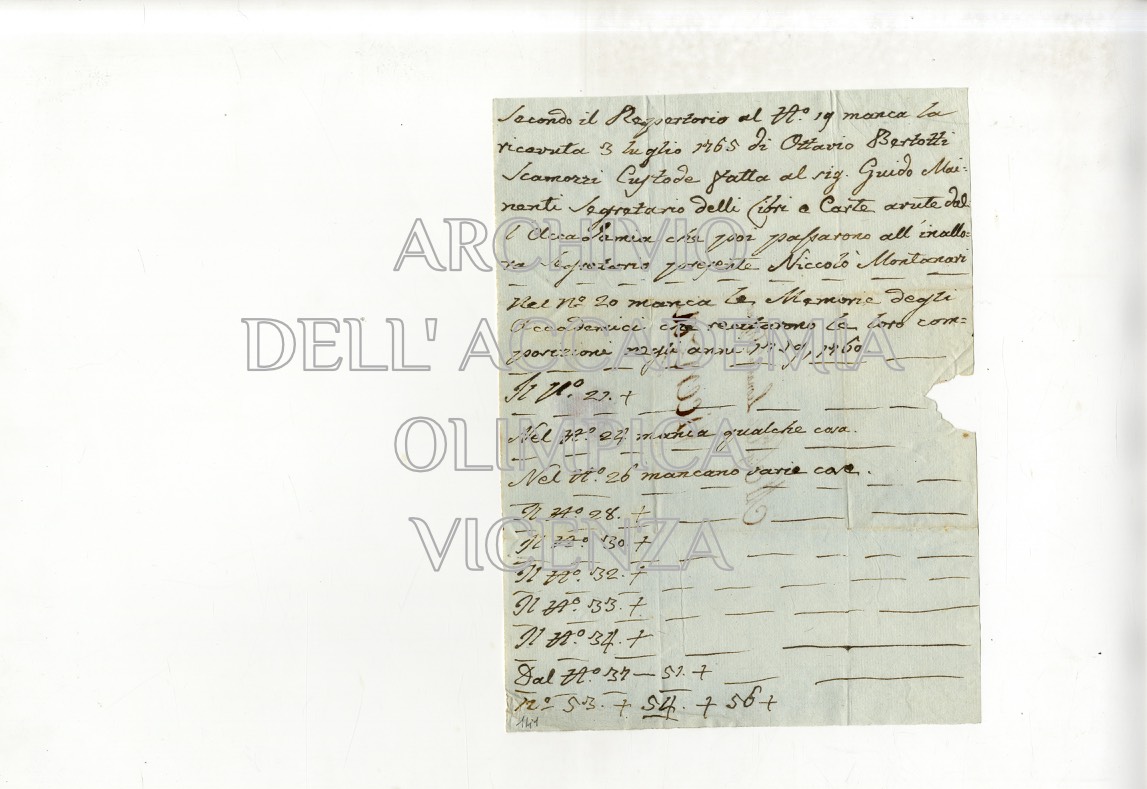 Secondo il Repertorio al N.º 19 manca la
ricevuta 3 luglio 1765 di Ottavio Bertotti
Scamozzi Custode fatta al sig. Guido Mai=
nenti Segretario delli Libri e Carte avute dal
l'Accademia che poi passarono all'inallo=
ra Segretario presente Niccolò Montanari
Nel Nº 20 manca le Memorie degli
Accademici che recitarono le loro com=
posizioni negli anni 1759, 1760
Il N.º 21. +
Nel N.º 24 manca qualche cosa.
Nel N.º 26 mancano varie cose.
Il N.º 28. +
Il N.º 30 +
Il N.º 32. +
Il N.º 33. +
Il N.º 34. +
Dal N.º 37 — 51. +
Nº 53. + 54. + 56 +
141
ARCHIVIO
DELL'ACCADEMIA
OLIMPICA
VICENZA